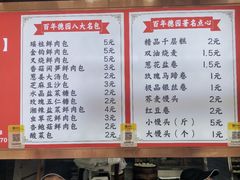 百年德园八大名包
瑶柱鲜肉包 5元
金钩鲜肉包 5元
叉烧鲜肉包 3元
香菇闷笋鲜肉包 3元
葱香大汤包 3元
芝麻豆沙包 3元
水晶盐菜糖包 2元
玫瑰五仁糖包 2元
湘辣盐菜鲜肉包 3元
虫草花鲜肉包 3元
香辣菇鲜肉包
酸菜包 2元
百年德园著名点心
精品千层糕 2元
双油烧麦 1.5元
葱花盐卷 1元
玫瑰马蹄卷 1元
极品银丝卷 1元
荞麦馒头 2元
红豆卷 2元
小馒头（斤） 5元
大馒头（个） 1元
70